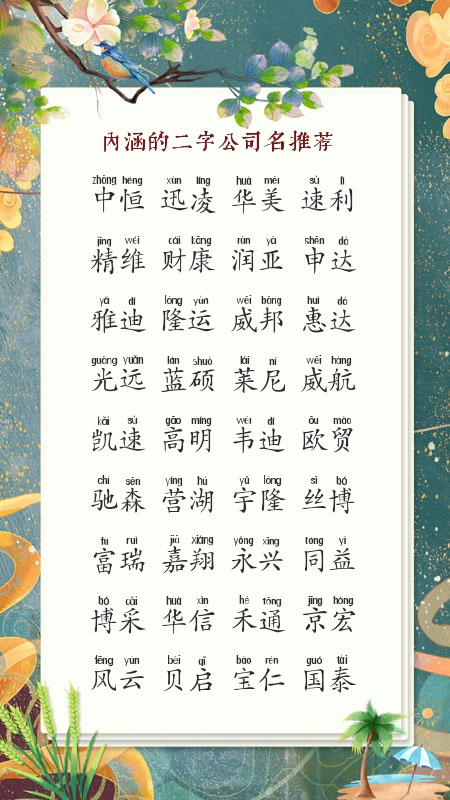 内涵的二字公司名推荐
zhōng héng xùn líng huá měi sù lì
中恒 迅凌 华美 速利
jīng wéi cái kāng rùn yà shēn dá
精维 财康 润亚 申达
yǎ dí lóng yùn wēi bāng huì dá
雅迪 隆运 威邦 惠达
guāng yuǎn lán shuò lái ní wēi háng
光远 蓝硕 莱尼 威航
kǎi sù gāo míng wéi dí ōu mào
凯速 高明 韦迪 欧贸
chí sēn yíng hú yǔ lóng sī bó
驰森 营湖 宇隆 丝博
fù ruì jiā xiáng yǒng xīng tóng yì
富瑞 嘉翔 永兴 同益
bó cǎi huá xìn hé tōng jīng hóng
博采 华信 禾通 京宏
fēng yún bèi qǐ bǎo rén guó tài
风云 贝启 宝仁 国泰